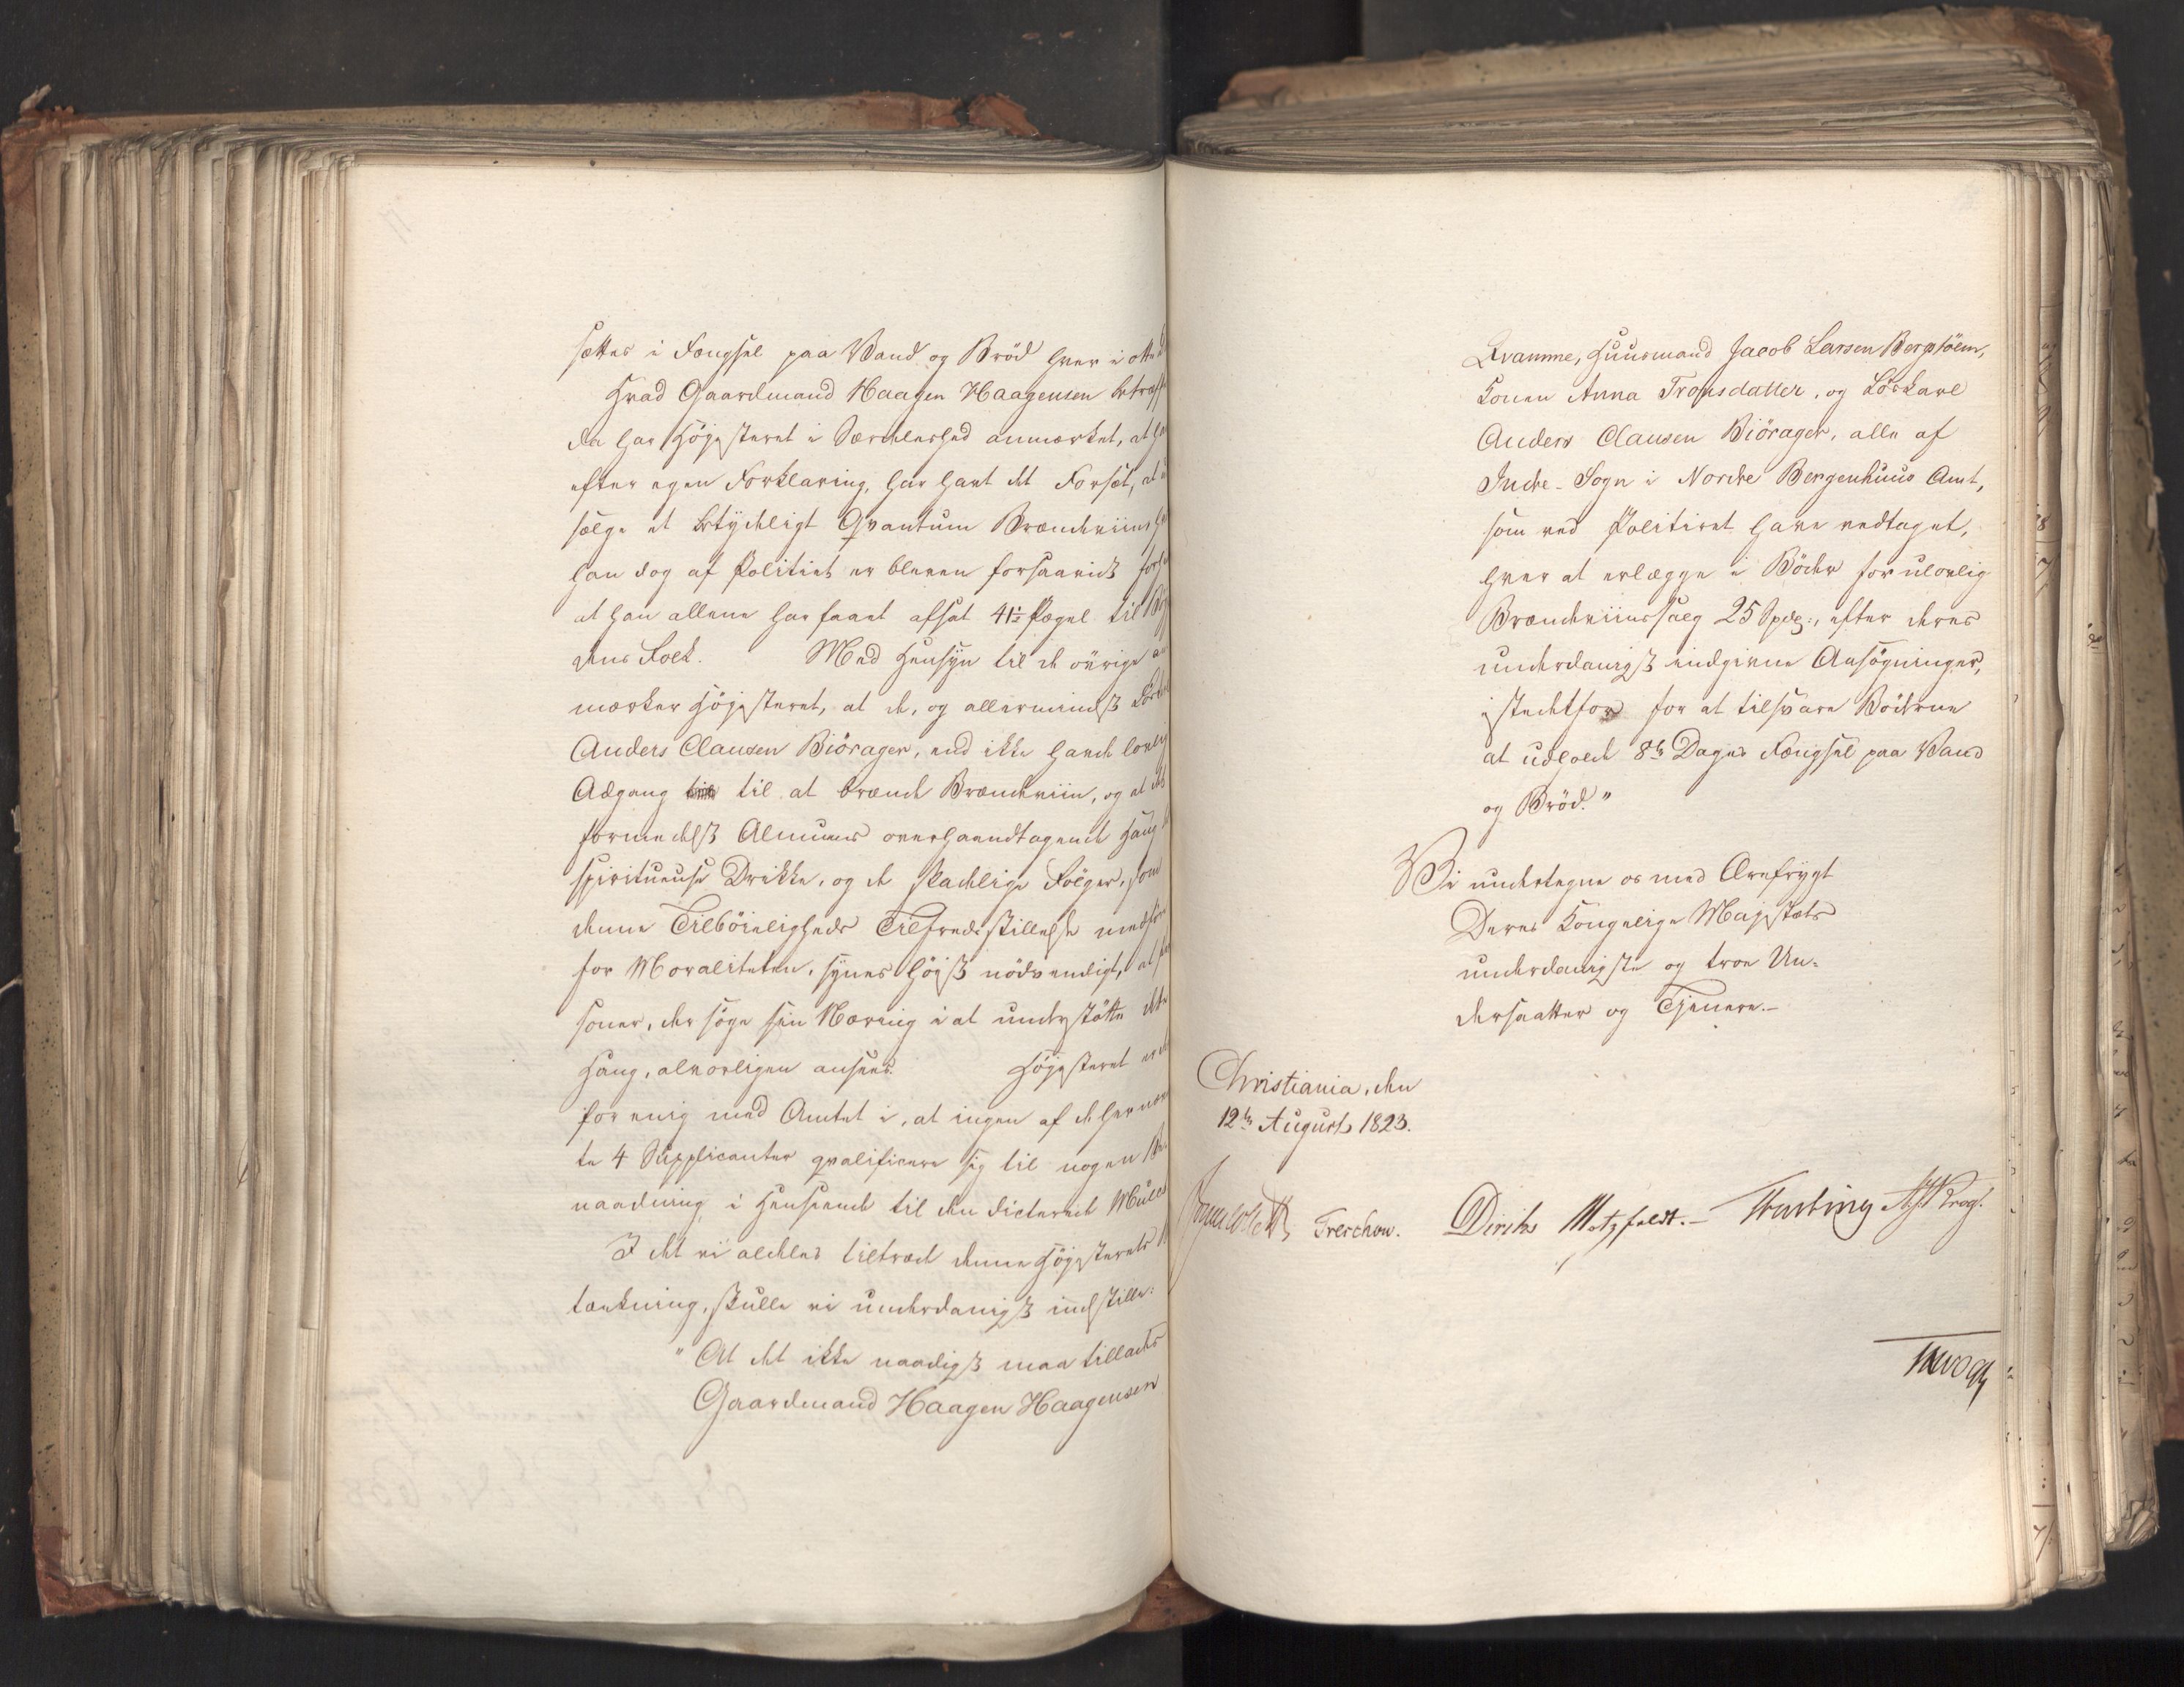 sættes i Fængsel paa Vand og Brød hver i otte
Hvad Gaardmand Haagen Haagensen betræff
da har Høiesteret i Særdeleshed anmærket, at
efter egen Forklaring, har havt det Forsæt, at
sælge et betydeligt Qvantum Brændeviin
han dog af Politiet er bleven forhindret
at han allene har faaet afsat 41½ Pægel til
dens Folk. Med Hensyn til de øvrige
mærker Høiesteret, at de, og allermindst
Anders Clausen Biörager, end ikke havde lovlig
Adgang til at brænde Brændeviin, og at
formedelst Almuens overhaandtagende Hang
spirituøse Drikke, og de skadelige Følger, som
denne Tilbøieligheds Tilfredsstillelse medføre
for Moraliteten, synes høist nødvendigt, at
soner, der søge sin Næring i at understøtte dette
Hang, alvorligen ansees. Høiesteret er
for enig med Amtet i, at ingen af de her næv
te 4 Supplicanter qvalificere sig til nogen Be
naadning i Henseende til den dicterede Mulct
I det vi aldeles tiltræde denne Høiesterets
tænkning, skulle vi underdanigst indstille:
"At det ikke naadigst maa tillades
Gaardmand Haagen Haagensen
Qvamme, Huusmand Jacob Larsen Bergstöem,
Konen Anna Tronsdatter, og Löskarl
Anders Clausen Biörager, alle af
Indre-Sogn i Nordre Bergenhuus Amt,
som ved Politiret have vedtaget,
hver at erlægge i Bøder for ulovlig
Brændeviinssalg 25 Spdlr:, efter deres
underdanigst indgivne Ansøgninger,
istedetfor for at tilsvare Bøderne
at udholde 8te Dages Fængsel paa Vand
og Brød."
Vi undertegne os med Ærefrygt
Deres Kongelige Majestæts
underdanigste og troe Un-
dersaatter og Tjenere.-
Christiania, den
12te August 1823.
Sommerfeldt Treschow. Diriks Motzfeldt.- Krogh